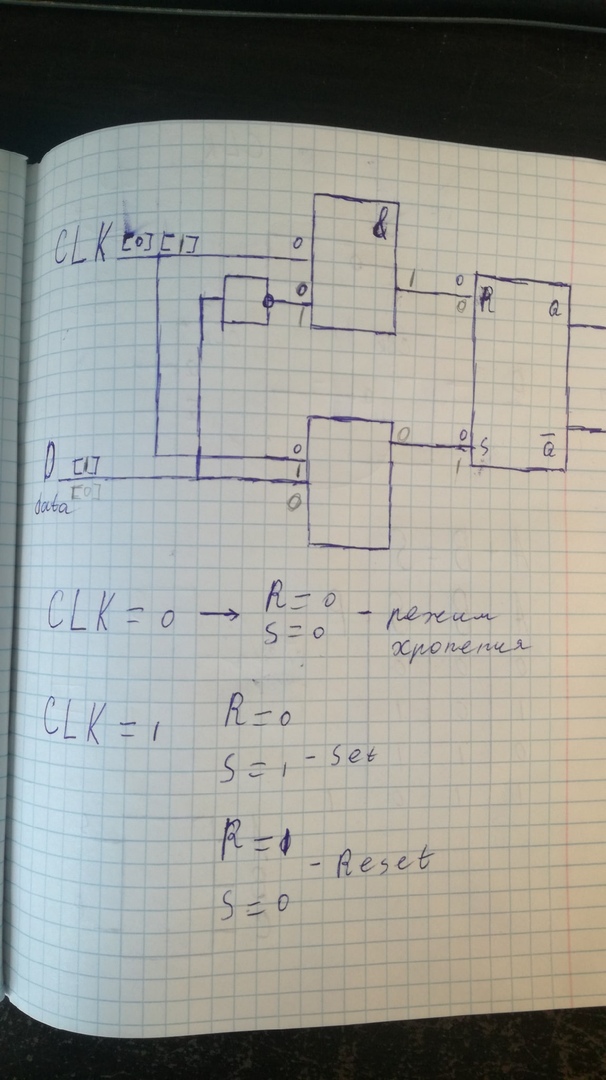 &
CLK [0] [1]
0
0
1
1
0
0
R
Q
D [1]
[0]
data
0
1
0
0
0
1
S
Q̅
CLK = 0 → R = 0
S = 0 - режим
хронения
CLK = 1 R = 0
S = 1 - Set
R = 1
- Reset
S = 0